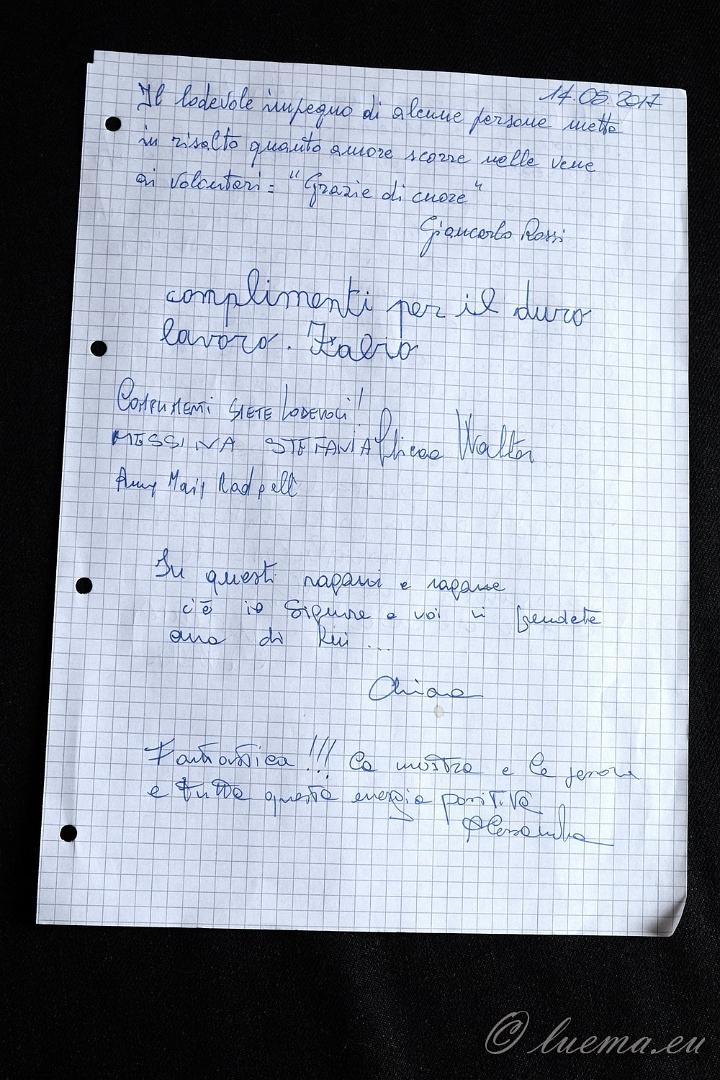 14.05.2017
Il lodevole impegno di alcune persone mette
in risalto quanto amore scorre nelle vene
ai volontari = "Grazie di cuore"
Giancarlo Rossi
complimenti per il duro
lavoro.
Complimenti siete lodevoli!
MESSINA STEFANIA Walter
In questi ragazzi e ragazze
c'è io Signore e voi vi
di
Chiara
Fantastica!!! La mostra e le
e tutta questa energia positiva
Alessandra
© luema.eu